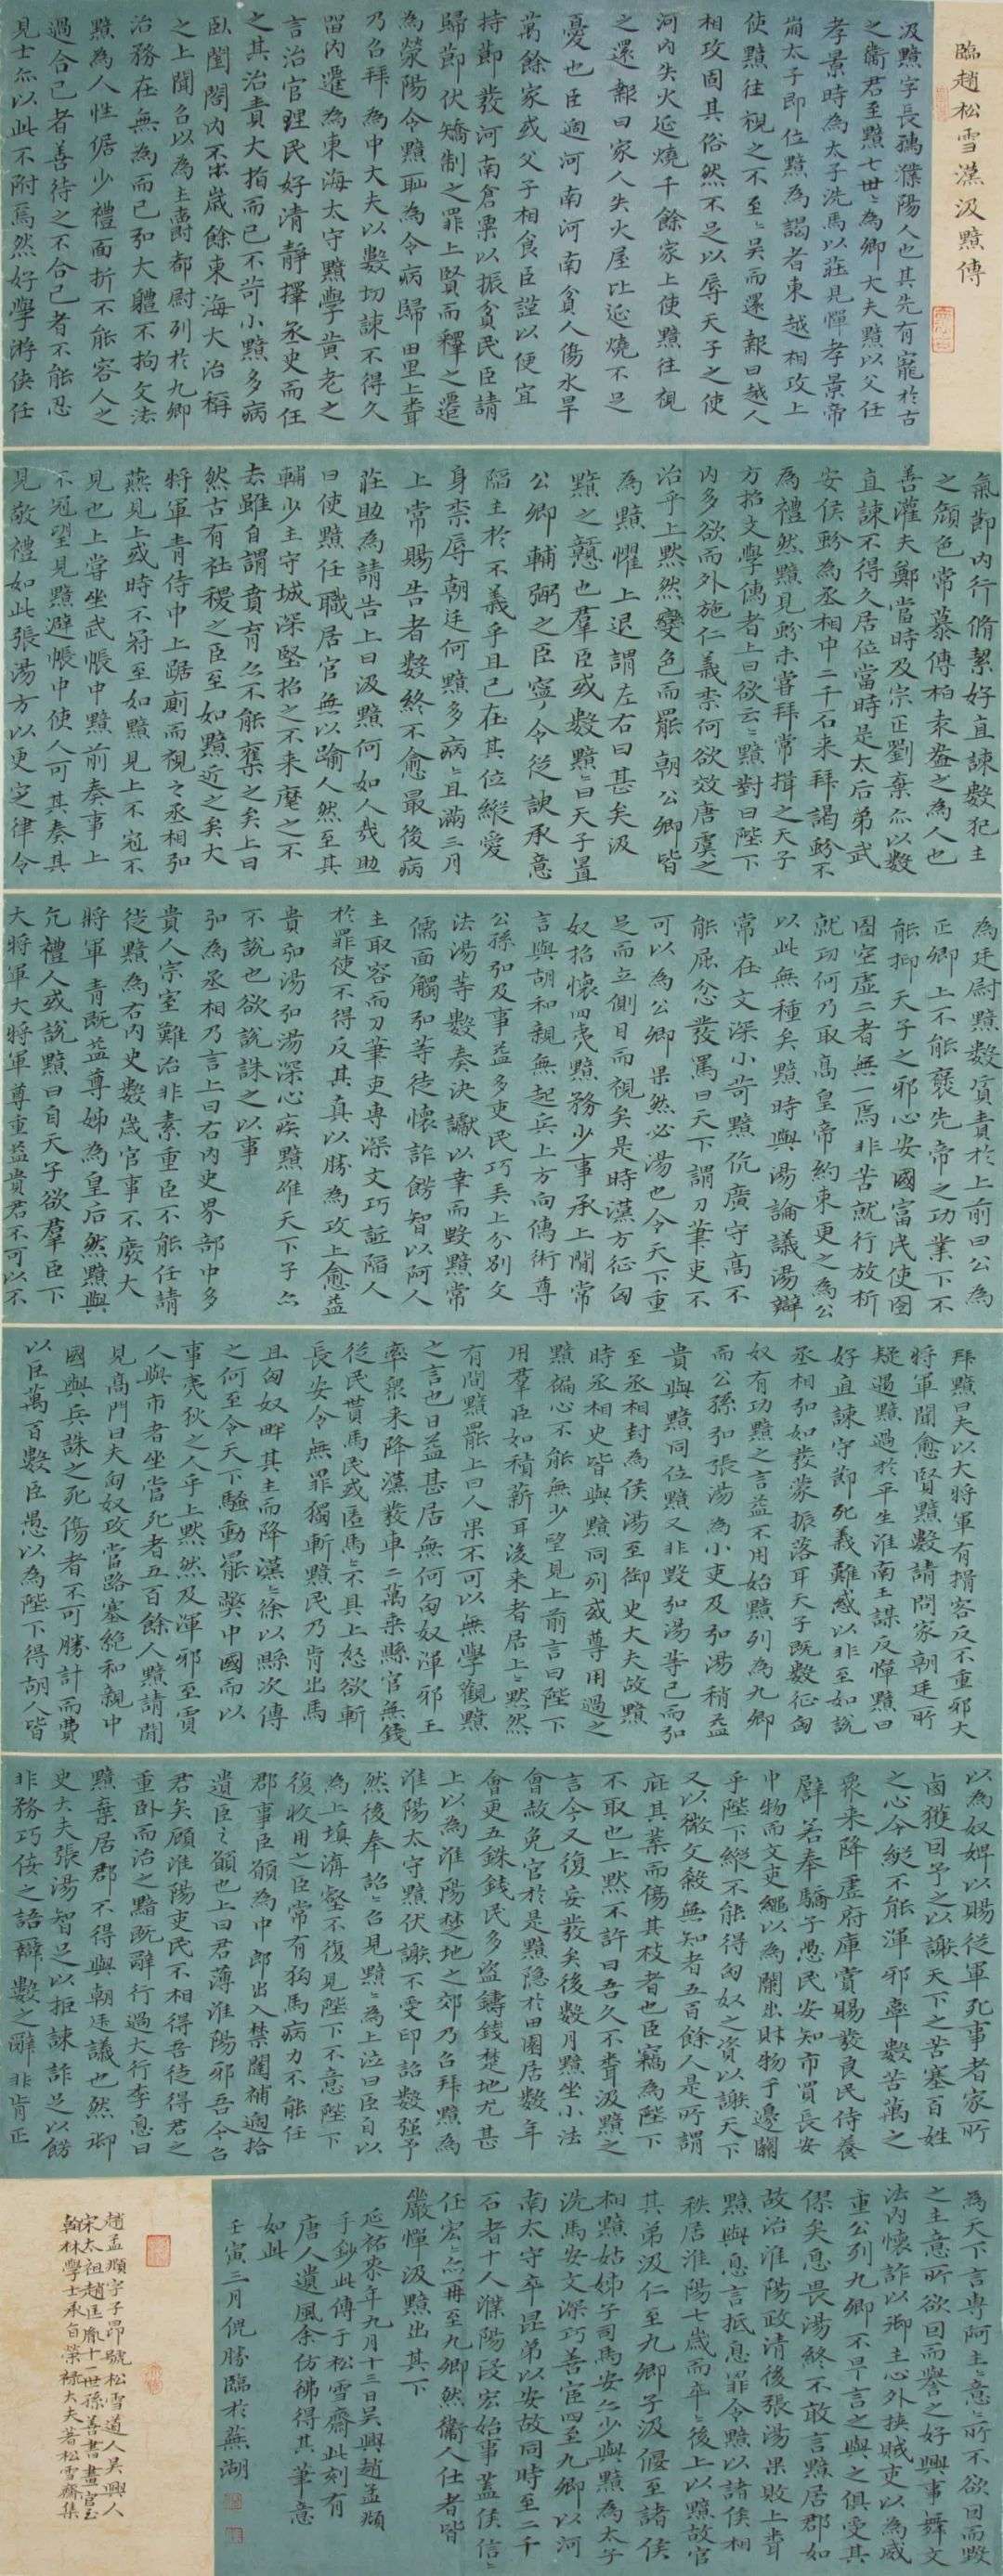 臨趙松雪漢汲黯傳
汲黯字長孺濮陽人也其先有寵於古
之衛君至黯七世〻為卿大夫黯以父任
孝景時為太子洗馬以莊見憚孝景帝
崩太子即位黯為謁者東越相攻上
使黯往視之不至〻吳而還報曰越人
相攻固其俗然不足以辱天子之使
河內失火延燒千餘家上使黯往視
之還報曰家人失火屋比延燒不足
憂也臣過河南河南貧人傷水旱
萬餘家或父子相食臣謹以便宜
持節發河南倉粟以振貧民臣請
歸節伏矯制之罪上賢而釋之遷
為滎陽令黯恥為令病歸田里上聞
乃召拜為中大夫以數切諫不得久
留內遷為東海太守黯學黃老之
言治官理民好清靜擇丞史而任
之其治責大指而已不苛小黯多病
臥閨閤內不出歲餘東海大治稱
之上聞召以為主爵都尉列於九卿
治務在無為而已弘大體不拘文法
黯為人性倨少禮面折不能容人之
過合己者善待之不合己者不能忍
見士亦以此不附焉然好學游俠任
氣節內行脩絜好直諫數犯主
之顏色常慕傅柏袁盎之為人也
善灌夫鄭當時及宗正劉棄亦以數
直諫不得久居位當時是太后弟武
安侯蚡為丞相中二千石来拜謁蚡不
為禮然黯見蚡未嘗拜常揖之天子
方招文學儒者上曰欲云〻黯對曰陛下
內多欲而外施仁義柰何欲效唐虞之
治乎上黙然變色而罷朝公卿皆
為黯懼上退謂左右曰甚矣汲
黯之戇也羣臣或數黯〻曰天子置
公卿輔弼之臣寧令從諛承意
陷主於不義乎且已在其位縱愛
身柰辱朝廷何黯多病〻且滿三月
上常賜告者數終不愈最後病
莊助為請告上曰汲黯何如人哉助
曰使黯任職居官無以踰人然至其
輔少主守城深堅招之不来麾之不
去雖自謂賁育亦不能奪之矣上曰
然古有社稷之臣至如黯近之矣大
將軍青侍中上踞廁而視之丞相弘
燕見上或時不冠至如黯見上不冠不
見也上嘗坐武帳中黯前奏事上
不冠望見黯避帳中使人可其奏其
見敬禮如此張湯方以更定律令
為廷尉黯數質責於上前曰公為
正卿上不能褒先帝之功業下不
能抑天子之邪心安國富民使囹
圄空虛二者無一焉非苦就行放析
就功何乃取髙皇帝約束更之為公
以此無種矣黯時與湯論議湯辯
常在文深小苛黯伉廣守髙不
能屈忿發罵曰天下謂刀筆吏不
可以為公卿果然必湯也令天下重
足而立側目而視矣是時漢方征匈
奴招懷四夷黯務少事承上閒常
言與胡和親無起兵上方向儒術尊
公孫弘及事益多吏民巧弄上分別文
法湯等數奏決讞以幸而黯常
儒面觸弘等徒懷詐飾智以阿人
主取容而刀筆吏專深文巧詆陷人
於罪使不得反其真以勝為攻上愈益
貴弘湯弘湯深心疾黯雖天下子亦
不說也欲說誅之以事
弘為丞相乃言上曰右內史界部中多
貴人宗室難治非素重臣不能任請
徙黯為右內史數歲官事不廢大
將軍青既益尊姊為皇后然黯與
亢禮人或說黯曰自天子欲羣臣下
大將軍大將軍尊重益貴君不可以不
拜黯曰夫以大將軍有揖客反不重邪大
將軍聞愈賢黯數請問家朝廷所
疑遇黯過於平生淮南王謀反憚黯曰
好直諫守節死義難惑以非至如說
丞相弘如發蒙振落耳天子既數征匈
奴有功黯之言益不用始黯列為九卿
而公孫弘張湯為小吏及弘湯稍益
貴與黯同位黯又非毀弘湯等已而弘
至丞相封為侯湯至御史大夫故黯
時丞相史皆與黯同列或尊用過之
黯褊心不能無少望見上前言曰陛下
用羣臣如積薪耳後来者居上〻黙然
有間黯罷上曰人果不可以無學觀黯
之言也日益甚居無何匈奴渾邪王
率衆来降漢發車二萬乘縣官無錢
從民貰馬民或匿馬〻不具上怒欲斬
長安令黯曰長安令無罪獨斬黯民乃肯出馬
且匈奴畔其主而降漢〻徐以縣次傳
之何至令天下騷動罷獘中國而以
事夷狄之人乎上黙然及渾邪至賈
人與市者坐當死者五百餘人黯請間
見髙門曰夫匈奴攻當路塞絶和親中
國興兵誅之死傷者不可勝計而費
以巨萬百數臣愚以為陛下得胡人皆
以為奴婢以賜從軍死事者家所
鹵獲因予之以謝天下之苦塞百姓
之心今縱不能渾邪率數萬之
衆来降虛府庫賞賜發良民侍養
譬若奉驕子愚民安知市買長安
中物而文吏繩以為闌出財物于邊關
乎陛下縱不能得匈奴之資以謝天下
又以微文殺無知者五百餘人是所謂
庇其葉而傷其枝者也臣竊為陛下
不取也上黙不許曰吾久不聞汲黯之
言今又復妄發矣後數月黯坐小法
會赦免官於是黯隱於田園居數年
會更五銖錢民多盜鑄錢楚地尤甚
上以為淮陽楚地之郊乃召拜黯為
淮陽太守黯伏謝不受印詔數强予
然後奉詔〻召見黯〻為上泣曰臣自以
為上填溝壑不復見陛下不意陛下
復收用之臣常有狗馬病力不能任
郡事臣願為中郎出入禁闥補過拾
遺臣之願也上曰君薄淮陽邪吾今召
君矣顧淮陽吏民不相得吾徒得君之
重臥而治之黯既辭行過大行李息曰
黯棄居郡不得與朝廷議也然御
史大夫張湯智足以拒諫詐足以飾
非務巧佞之語辯數之辭非肯正
為天下言專阿主〻意〻所不欲因而毀
之主意所欲因而譽之好興事舞文
法內懷詐以御主心外挾賊吏以為威
重公列九卿不早言之與之俱受其
僇矣息畏湯終不敢言黯居郡如
故治淮陽政清後張湯果敗上聞
黯與息言抵息罪令黯以諸侯相
秩居淮陽七歲而卒〻後上以黯故官
其弟汲仁至九卿子汲偃至諸侯
相黯姑姊子司馬安亦少與黯為太子
洗馬安文深巧善宦四至九卿以河
南太守卒昆弟以安故同時至二千
石者十人濮陽段宏始事蓋侯信〻
任宏〻亦再至九卿然衛人仕者皆
嚴憚汲黯出其下
延祐柒年九月十三日吳興趙孟頫
手鈔此傳于松雪齋此刻有
唐人遺風余仿彿得其筆意
如此
壬寅三月倪勝臨於蕪湖
趙孟頫字子昂號松雪道人吳興人
宋太祖趙匡胤十一世孫善書畫官至
翰林學士承旨榮祿大夫著松雪齋集